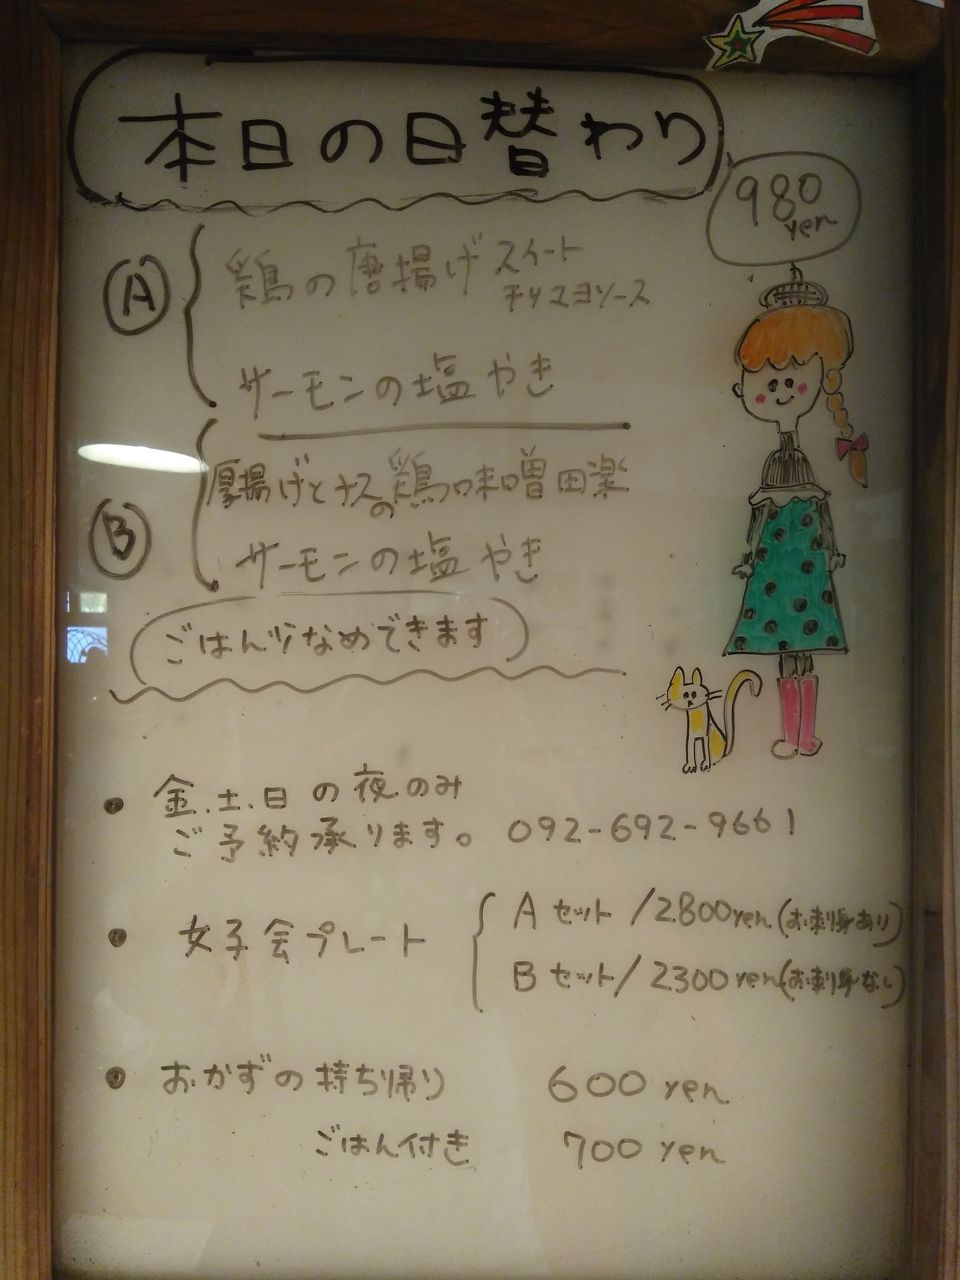 本日の日替わり
980
yen
A
鶏の唐揚げ スイート
チリマヨソース
サーモンの塩やき
B
厚揚げとナスの鶏味噌田楽
サーモンの塩やき
ごはん少なめできます
• 金.土.日の夜のみ
ご予約承ります。 092-692-9661
• 女子会プレート
Aセット/2800yen(お刺身あり)
Bセット/2300yen(お刺身なし)
• おかずの持ち帰り 600yen
ごはん付き 700yen